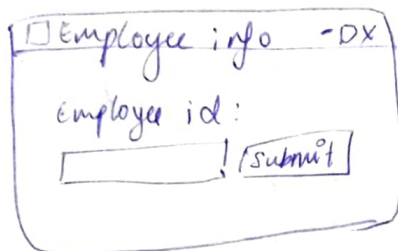 Employee info -DX
Employee id:
Submit